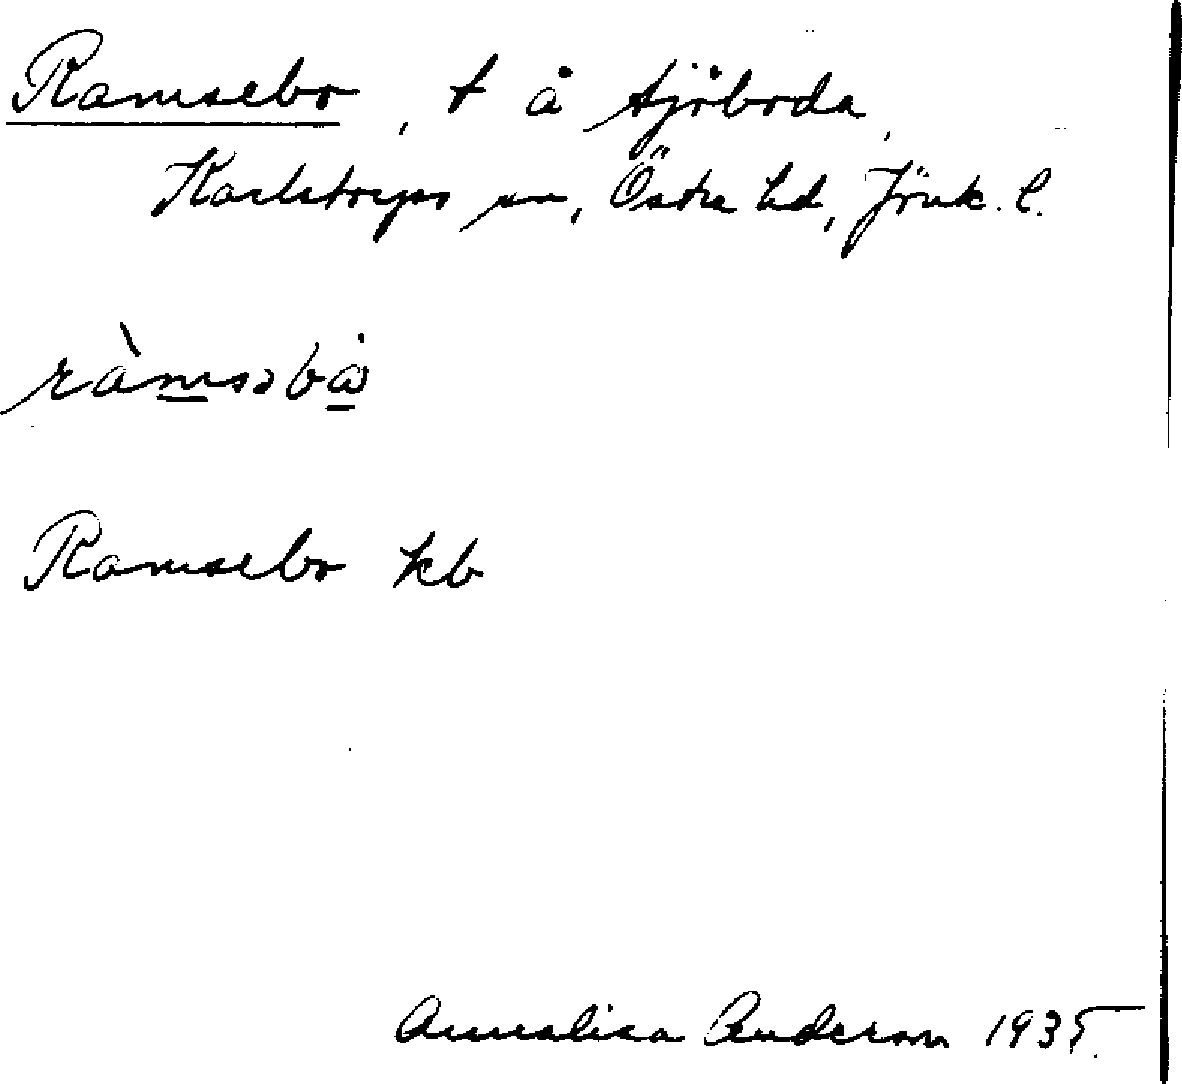 Ramsebo, t å Sjöboda,
Karlstorps sn, Östra hd, Jönk. l.
ràmsəbå
Ramsebo kb
Annalisa Anderson 1935.